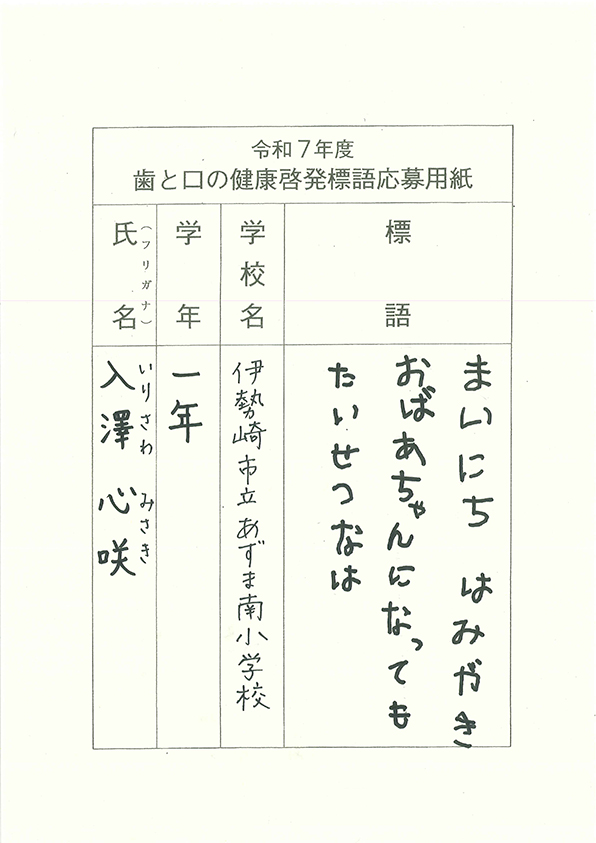 令和７年度
歯と口の健康啓発標語応募用紙
標語
まいにち　はみがき
おばあちゃんになっても
たいせつなは
学校名
伊勢崎市立あずま南小学校
学年
一年
氏名
（フリガナ）
いりさわ　みさき
入澤　心咲